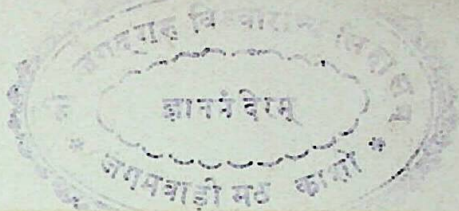 जगद्गुरु विश्वाराध्य
ज्ञानमंदिरम्
* जंगमवाड़ी मठ काशी *